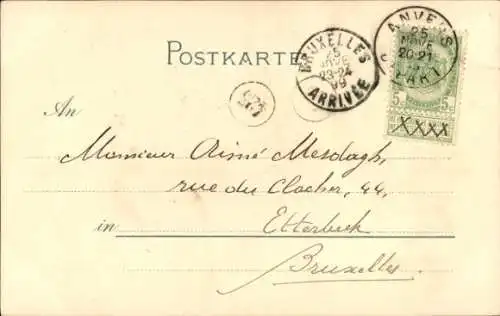 POSTKARTE
BRUXELLES
25
23-24
99
ARRIVÉE
ANVERS
25
20-21
DÉPART
5c 5c
XXXX
An
Monsieur Aimé Mesdagh,
rue du Clocher, 44,
in Etterbeek
Bruxelles.